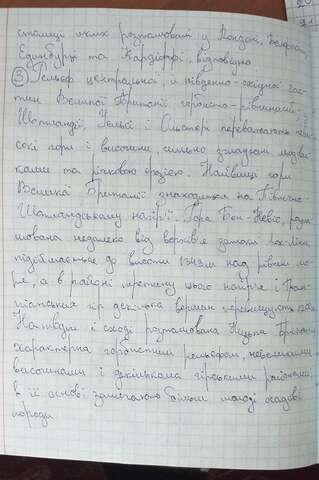 столиці яких розташовані у Лондоні, Белфасті,
Единбурзі та Кардіффі, відповідно.
③ Рельєф центральної, й південно-східної час-
тин Великої Британії горбисто-рівнинний, у
Шотландії, Уельсі і Ольстері переважають
сокі гори і височини, сильно згладжені льодови-
ками та річковою ерозією. Найвищі гори
Великої Британії знаходяться на Північно-
Шотландському нагір'ї. Гора Бен-Невіс, розта-
шована недалеко від верхів'я затоки Лох-Лінн,
підіймається до висоти 1343м над рівнем мо-
ря, а в районі перетину цього нагір'я і Грам-
піанських гір декілька вершин перевищують
На півдні і сході розташована Низька Британія,
характерна горбистим рельєфом, невеликими
височинами і декількома гірськими районами,
в її основі залягають більш молоді осадові
породи.